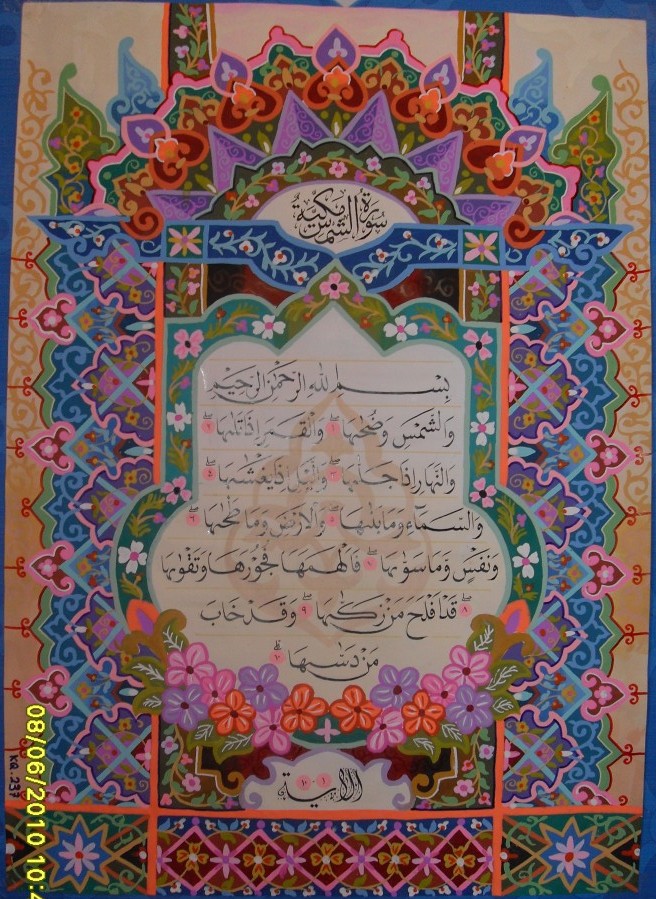 سورة الشمس مكية
بِسْمِ اللهِ الرَّحْمٰنِ الرَّحِيْمِ
وَالشَّمْسِ وَضُحٰىهَا ۝١ وَالْقَمَرِ اِذَا تَلٰىهَا ۝٢
وَالنَّهَارِ اِذَا جَلّٰىهَا ۝٣ وَالَّيْلِ اِذَا يَغْشٰىهَا ۝٤
وَالسَّمَاۤءِ وَمَا بَنٰىهَا ۝٥ وَالْاَرْضِ وَمَا طَحٰىهَا ۝٦
وَنَفْسٍ وَّمَا سَوّٰىهَا ۝٧ فَاَلْهَمَهَا فُجُوْرَهَا وَتَقْوٰىهَا
۝٨ قَدْ اَفْلَحَ مَنْ زَكّٰىهَا ۝٩ وَقَدْ خَابَ
مَنْ دَسّٰىهَا ۝١٠
الاية ١-١٠
KR.237
08/06/2010 10:4